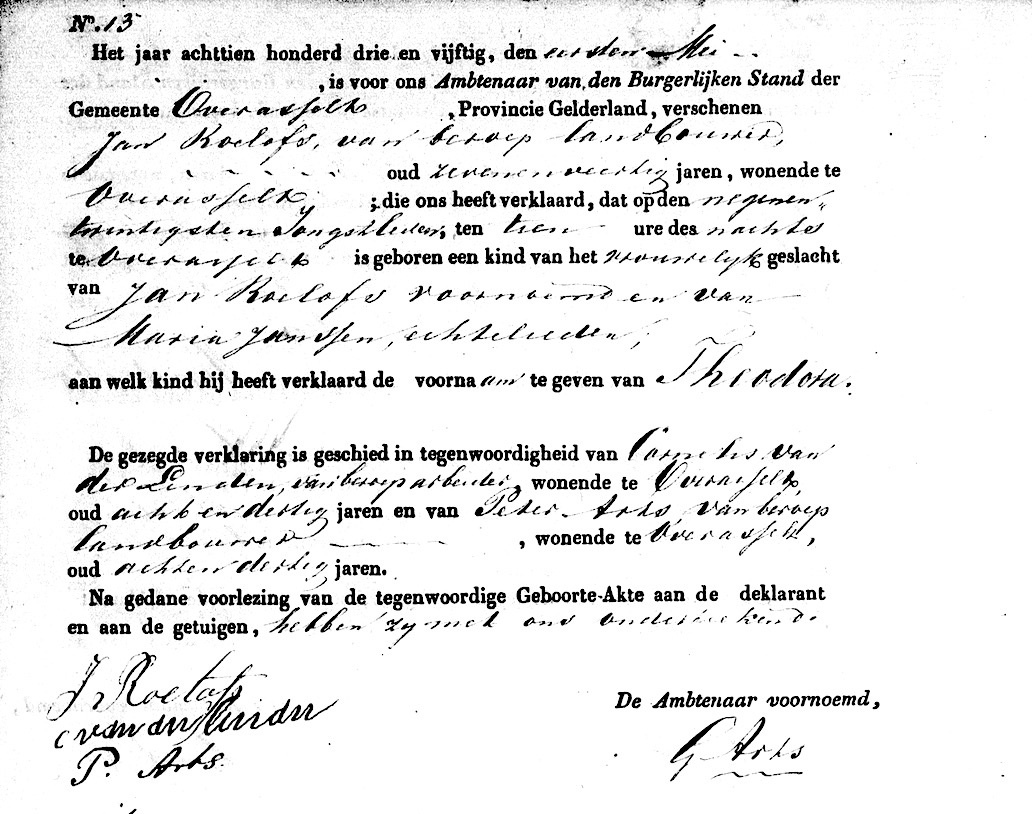 No. 13
Het jaar achttien honderd drie en vijftig, den eersten Mei
, is voor ons Ambtenaar van den Burgerlijken Stand der
Gemeente Overasselt , Provincie Gelderland, verschenen
Jan Roelofs, van beroep landbouwer,
oud zevenenveertig jaren, wonende te
Overasselt, ; die ons heeft verklaard, dat op den negenen„
twintigsten Jongstleden, ten tien ure des nachts
te Overasselt is geboren een kind van het vrouwelyk geslacht
van Jan Roelofs voornoemd en van
Maria Janssen, echtelieden,
aan welk kind hij heeft verklaard de voornaam te geven van Theodora.
De gezegde verklaring is geschied in tegenwoordigheid van Cornelis van
der Linden, van beroep arbeider, wonende te Overasselt,
oud acht en dertig jaren en van Peter Arts van beroep
landbouwer , wonende te Overasselt,
oud acht en dertig jaren.
Na gedane voorlezing van de tegenwoordige Geboorte-Akte aan de deklarant
en aan de getuigen, hebben zy met ons onderteekend.
J Roelofs
C van der Linden
P. Arts
De Ambtenaar voornoemd,
G Arts